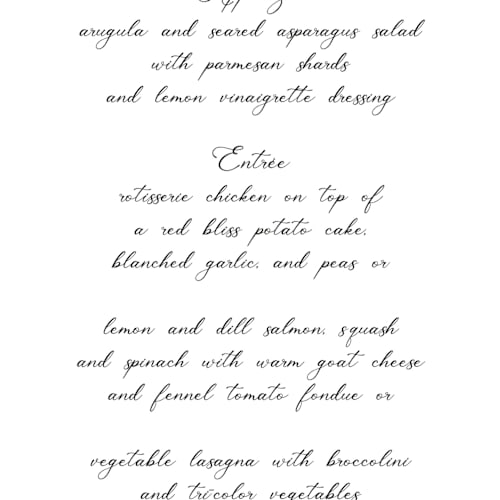 arugula and seared asparagus salad
with parmesan shards
and lemon vinaigrette dressing
Entrée
rotisserie chicken on top of
a red bliss potato cake,
blanched garlic, and peas or
lemon and dill salmon, squash
and spinach with warm goat cheese
and fennel tomato fondue or
vegetable lasagna with broccolini
and tri-color vegetables